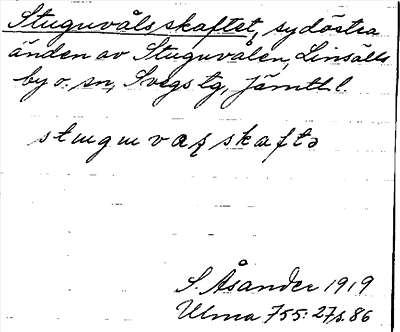 Stuguvålsskaftet, sydöstra
änden av Stuguvålen, Linsälls
by o. sn, Svegs tg, Jämtl l.
stuguvaʂskaftə
S. Åsander 1919
Ulma 755: 27 s. 86